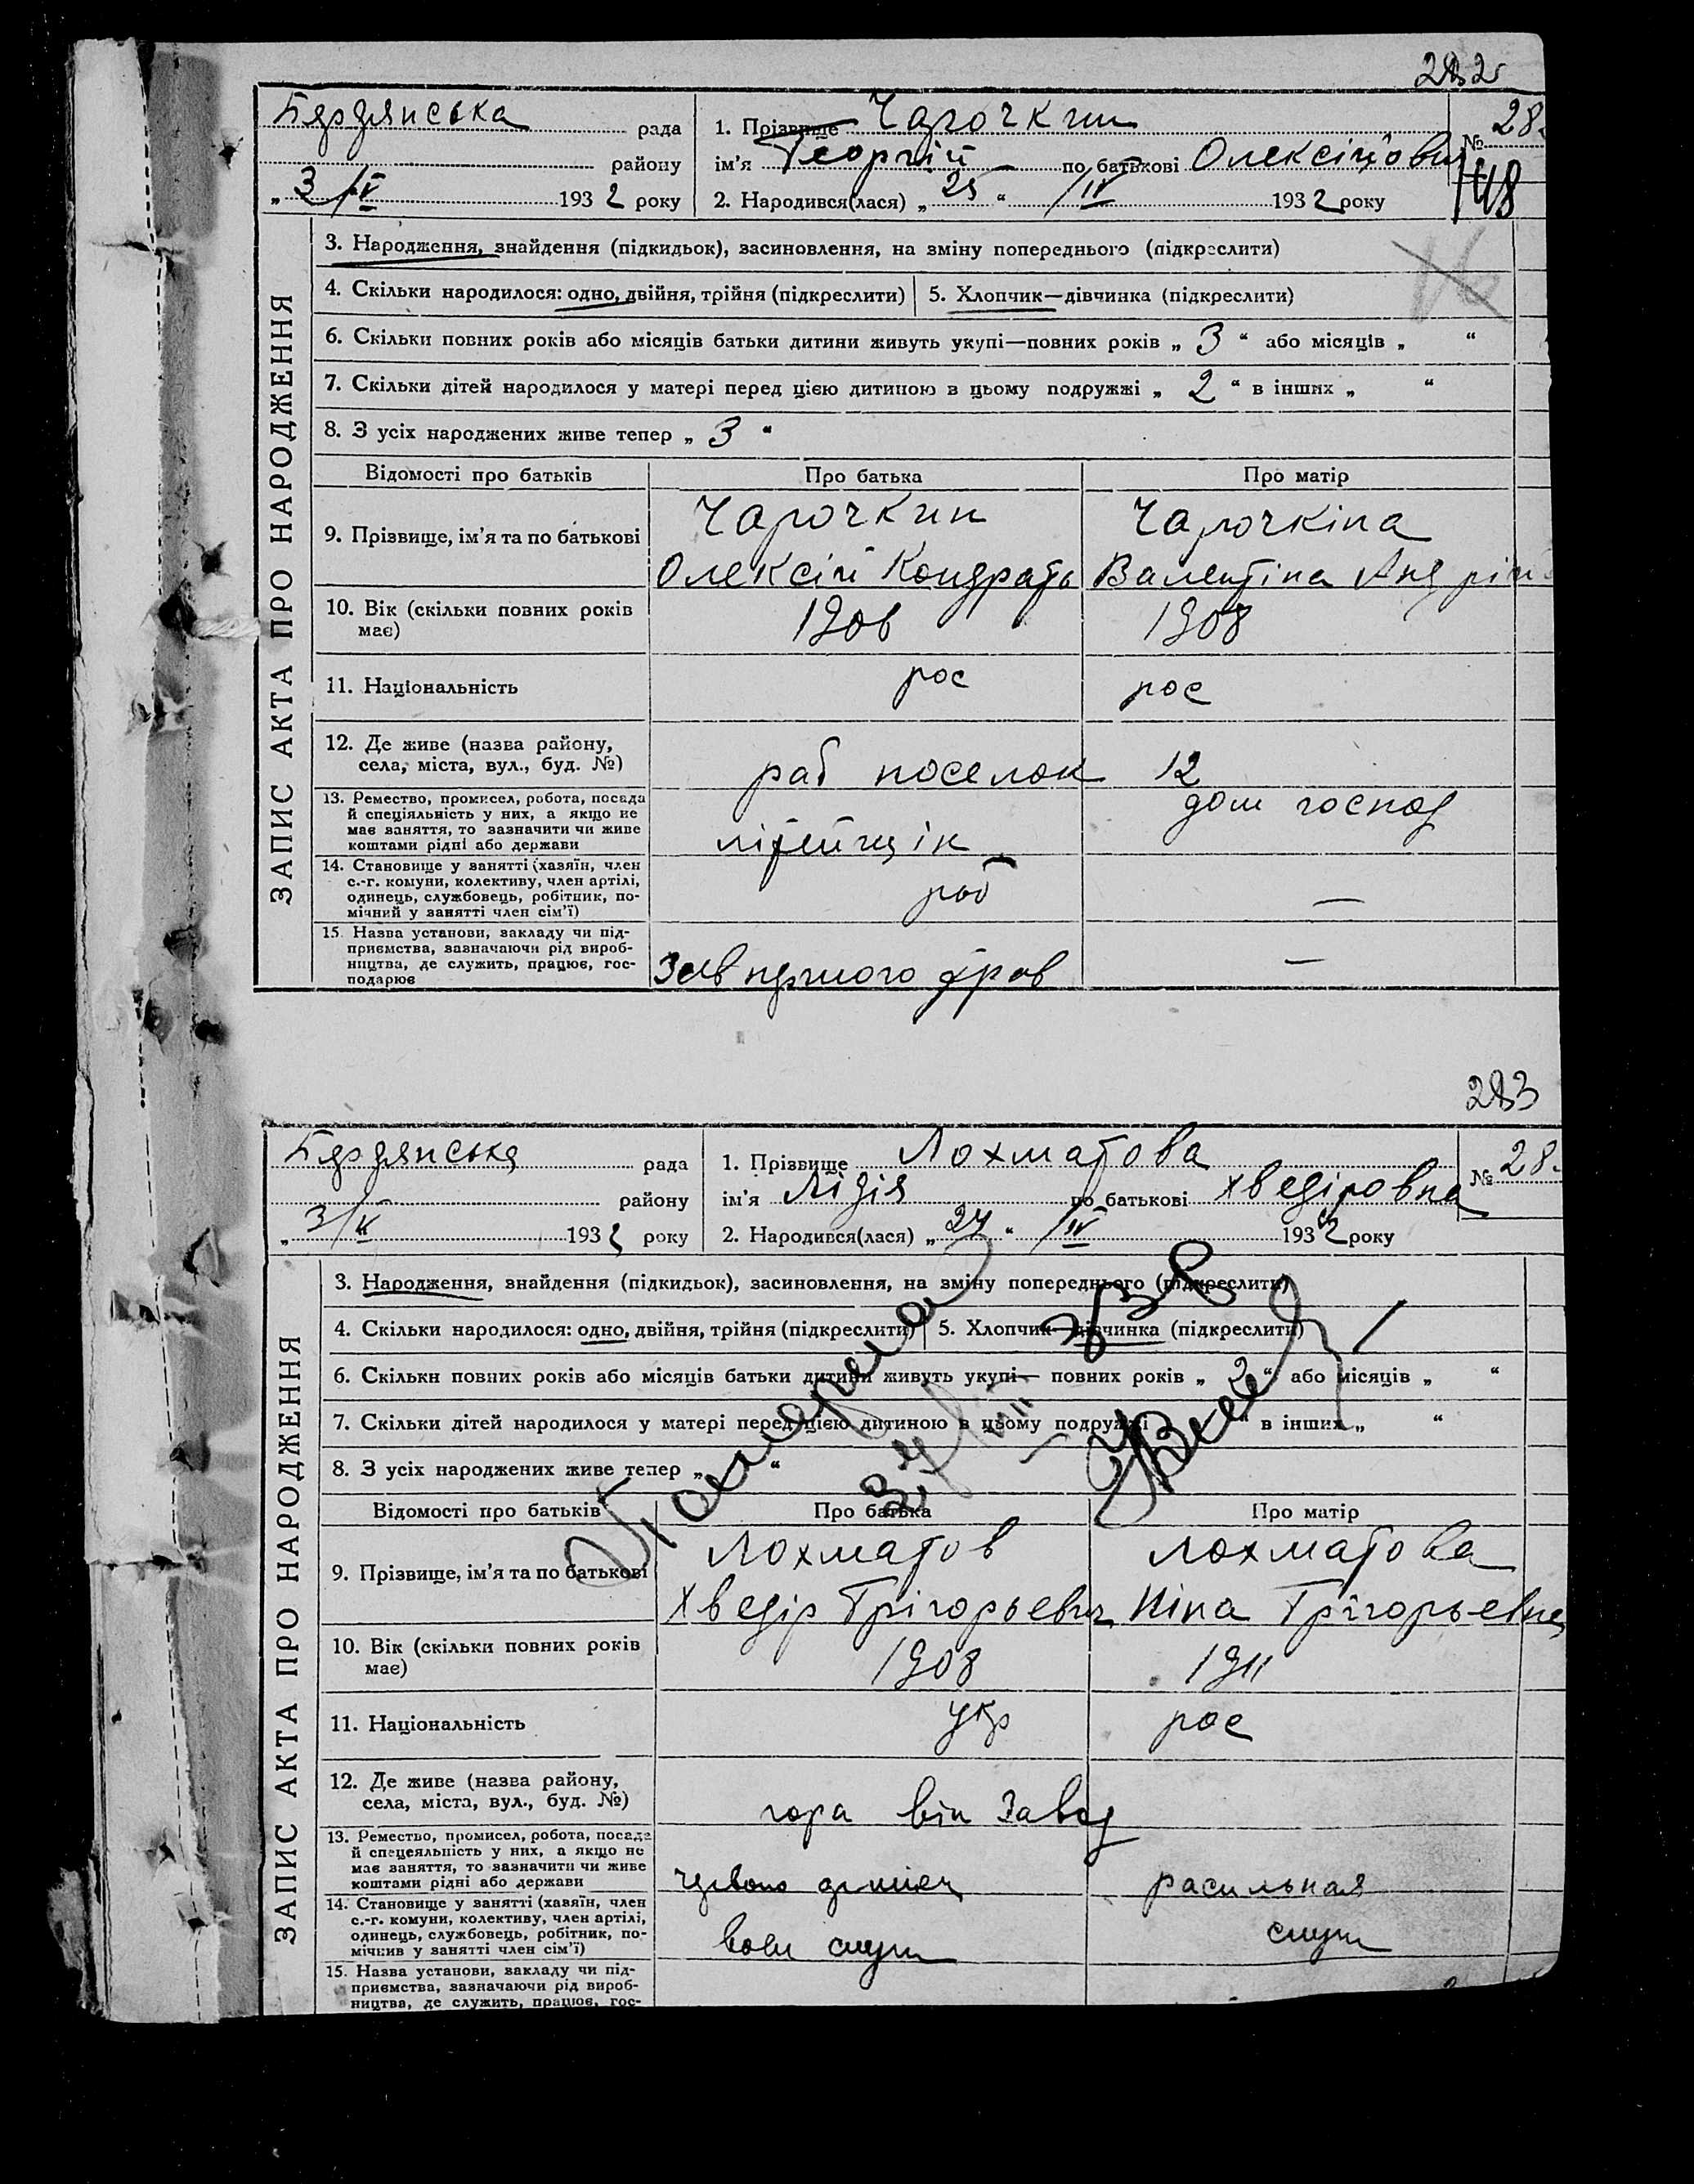 282
Бердянська рада
району
„ 3/V 1932 року
1. Прізвище Чарочкин
ім’я Георгій по батькові Олексійович
2. Народився(лася) „ 25 “ /IV 1932 року
№ 28
148
ЗАПИС АКТА ПРО НАРОДЖЕННЯ
3. Народження, знайдення (підкидьок), засиновлення, на зміну попереднього (підкреслити)
4. Скільки народилося: одно, двійня, трійня (підкреслити) 5. Хлопчик—дівчинка (підкреслити)
6. Скільки повних років або місяців батьки дитини живуть укупі—повних років „ 3 “ або місяців „ “
7. Скільки дітей народилося у матері перед цією дитиною в цьому подружжі „ 2 “ в інших „ “
8. З усіх народжених живе тепер „ 3 “
Відомості про батьків Про батька Про матір
9. Прізвище, ім’я та по батькові
Чарочкин
Олексій Кондрать
Чарочкіна
Валентіна Андрій
10. Вік (скільки повних років
має)
1906 1908
11. Національність рос рос
12. Де живе (назва району,
села, міста, вул., буд. №)
раб поселок 12
13. Ремество, промисел, робота, посада
й спеціяльність у них, а якщо не
має заняття, то зазначити чи живе
коштами рідні або держави
літейщік дом господ
14. Становище у занятті (хазяїн, член
с.-г. комуни, колективу, член артілі,
одинець, службовець, робітник, по-
мічний у занятті член сім’ї)
роб —
15. Назва установи, закладу чи під-
приємства, зазначаючи рід вироб-
ництва, де служить, працює, гос-
подарює
Зав першого —
283
Бердянська рада
району
„ 3/V 1932 року
1. Прізвище Лохматова
ім’я Лідія по батькові Хведіровна
2. Народився(лася) „ 24 “ /IV 1932 року
№ 28
ЗАПИС АКТА ПРО НАРОДЖЕННЯ
3. Народження, знайдення (підкидьок), засиновлення, на зміну попереднього (підкреслити)
4. Скільки народилося: одно, двійня, трійня (підкреслити) 5. Хлопчик—дівчинка (підкреслити)
6. Скільки повних років або місяців батьки дитини живуть укупі— повних років „ 2 “ або місяців „ “
7. Скільки дітей народилося у матері перед цією дитиною в цьому подружжі “ в інших „ “
8. З усіх народжених живе тепер „ “
Відомості про батьків Про батька Про матір
9. Прізвище, ім’я та по батькові
Лохматов
Хведір Грігорьевич
Лохматова
Ніна Грігорьевна
10. Вік (скільки повних років
має)
1908 1911
11. Національність укр рос
12. Де живе (назва району,
села, міста, вул., буд. №)
гора він Завод
13. Ремество, промисел, робота, посада
й спецеяльність у них, а якщо не
має заняття, то зазначити чи живе
коштами рідні або держави
червоно расильная
14. Становище у занятті (хазяїн, член
с.-г. комуни, колективу, член артілі,
одинець, службовець, робітник, по-
мічнив у занятті член сім’ї)
служ
15. Назва установи, закладу чи під-
приємства, зазначаючи рід вироб-
ництва, де служить, працює, гос-